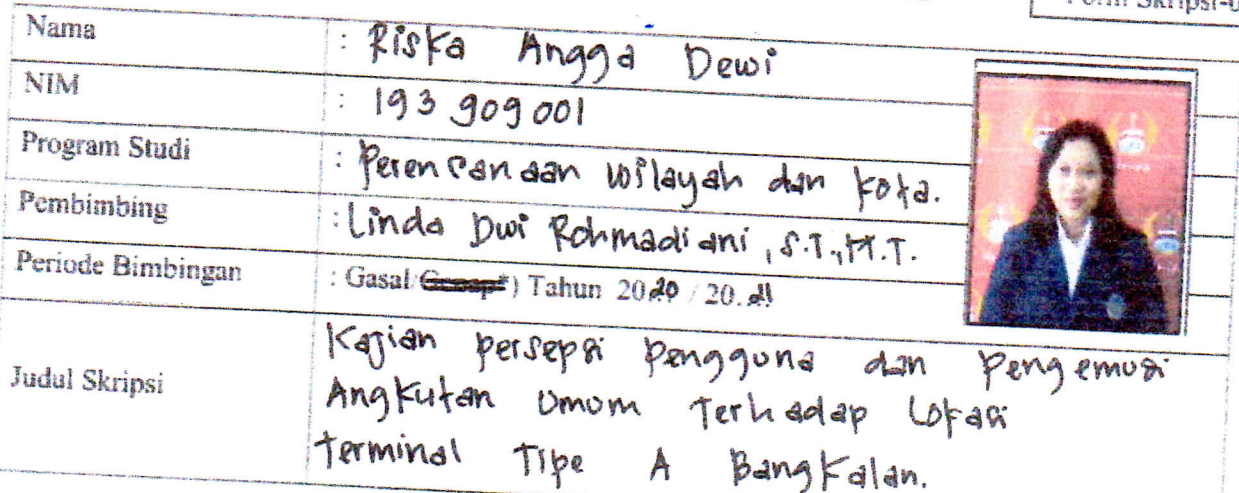 Form Skripsi-0
Nama : Riska Angga Dewi
NIM : 193 909 001
Program Studi : Perencanaan wilayah dan kota.
Pembimbing : Linda Dwi Rohmadiani, S.T., M.T.
Periode Bimbingan : Gasal/Genap*) Tahun 2020 / 20.21
Judul Skripsi : Kajian persepsi pengguna dan pengemudi
Angkutan Umum Terhadap Lokasi
terminal Tipe A Bangkalan.